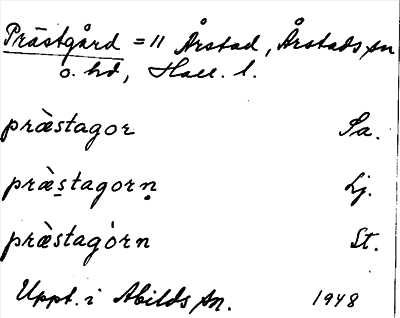 Prästgård = 11 Årstad, Årstads sn
o. hd, Hall. l.
præ̀stagor Sa.
præ̀s̱tagorṇ Lj.
præ̀stagòrn St.
Uppt. i Abilds sn. 1948